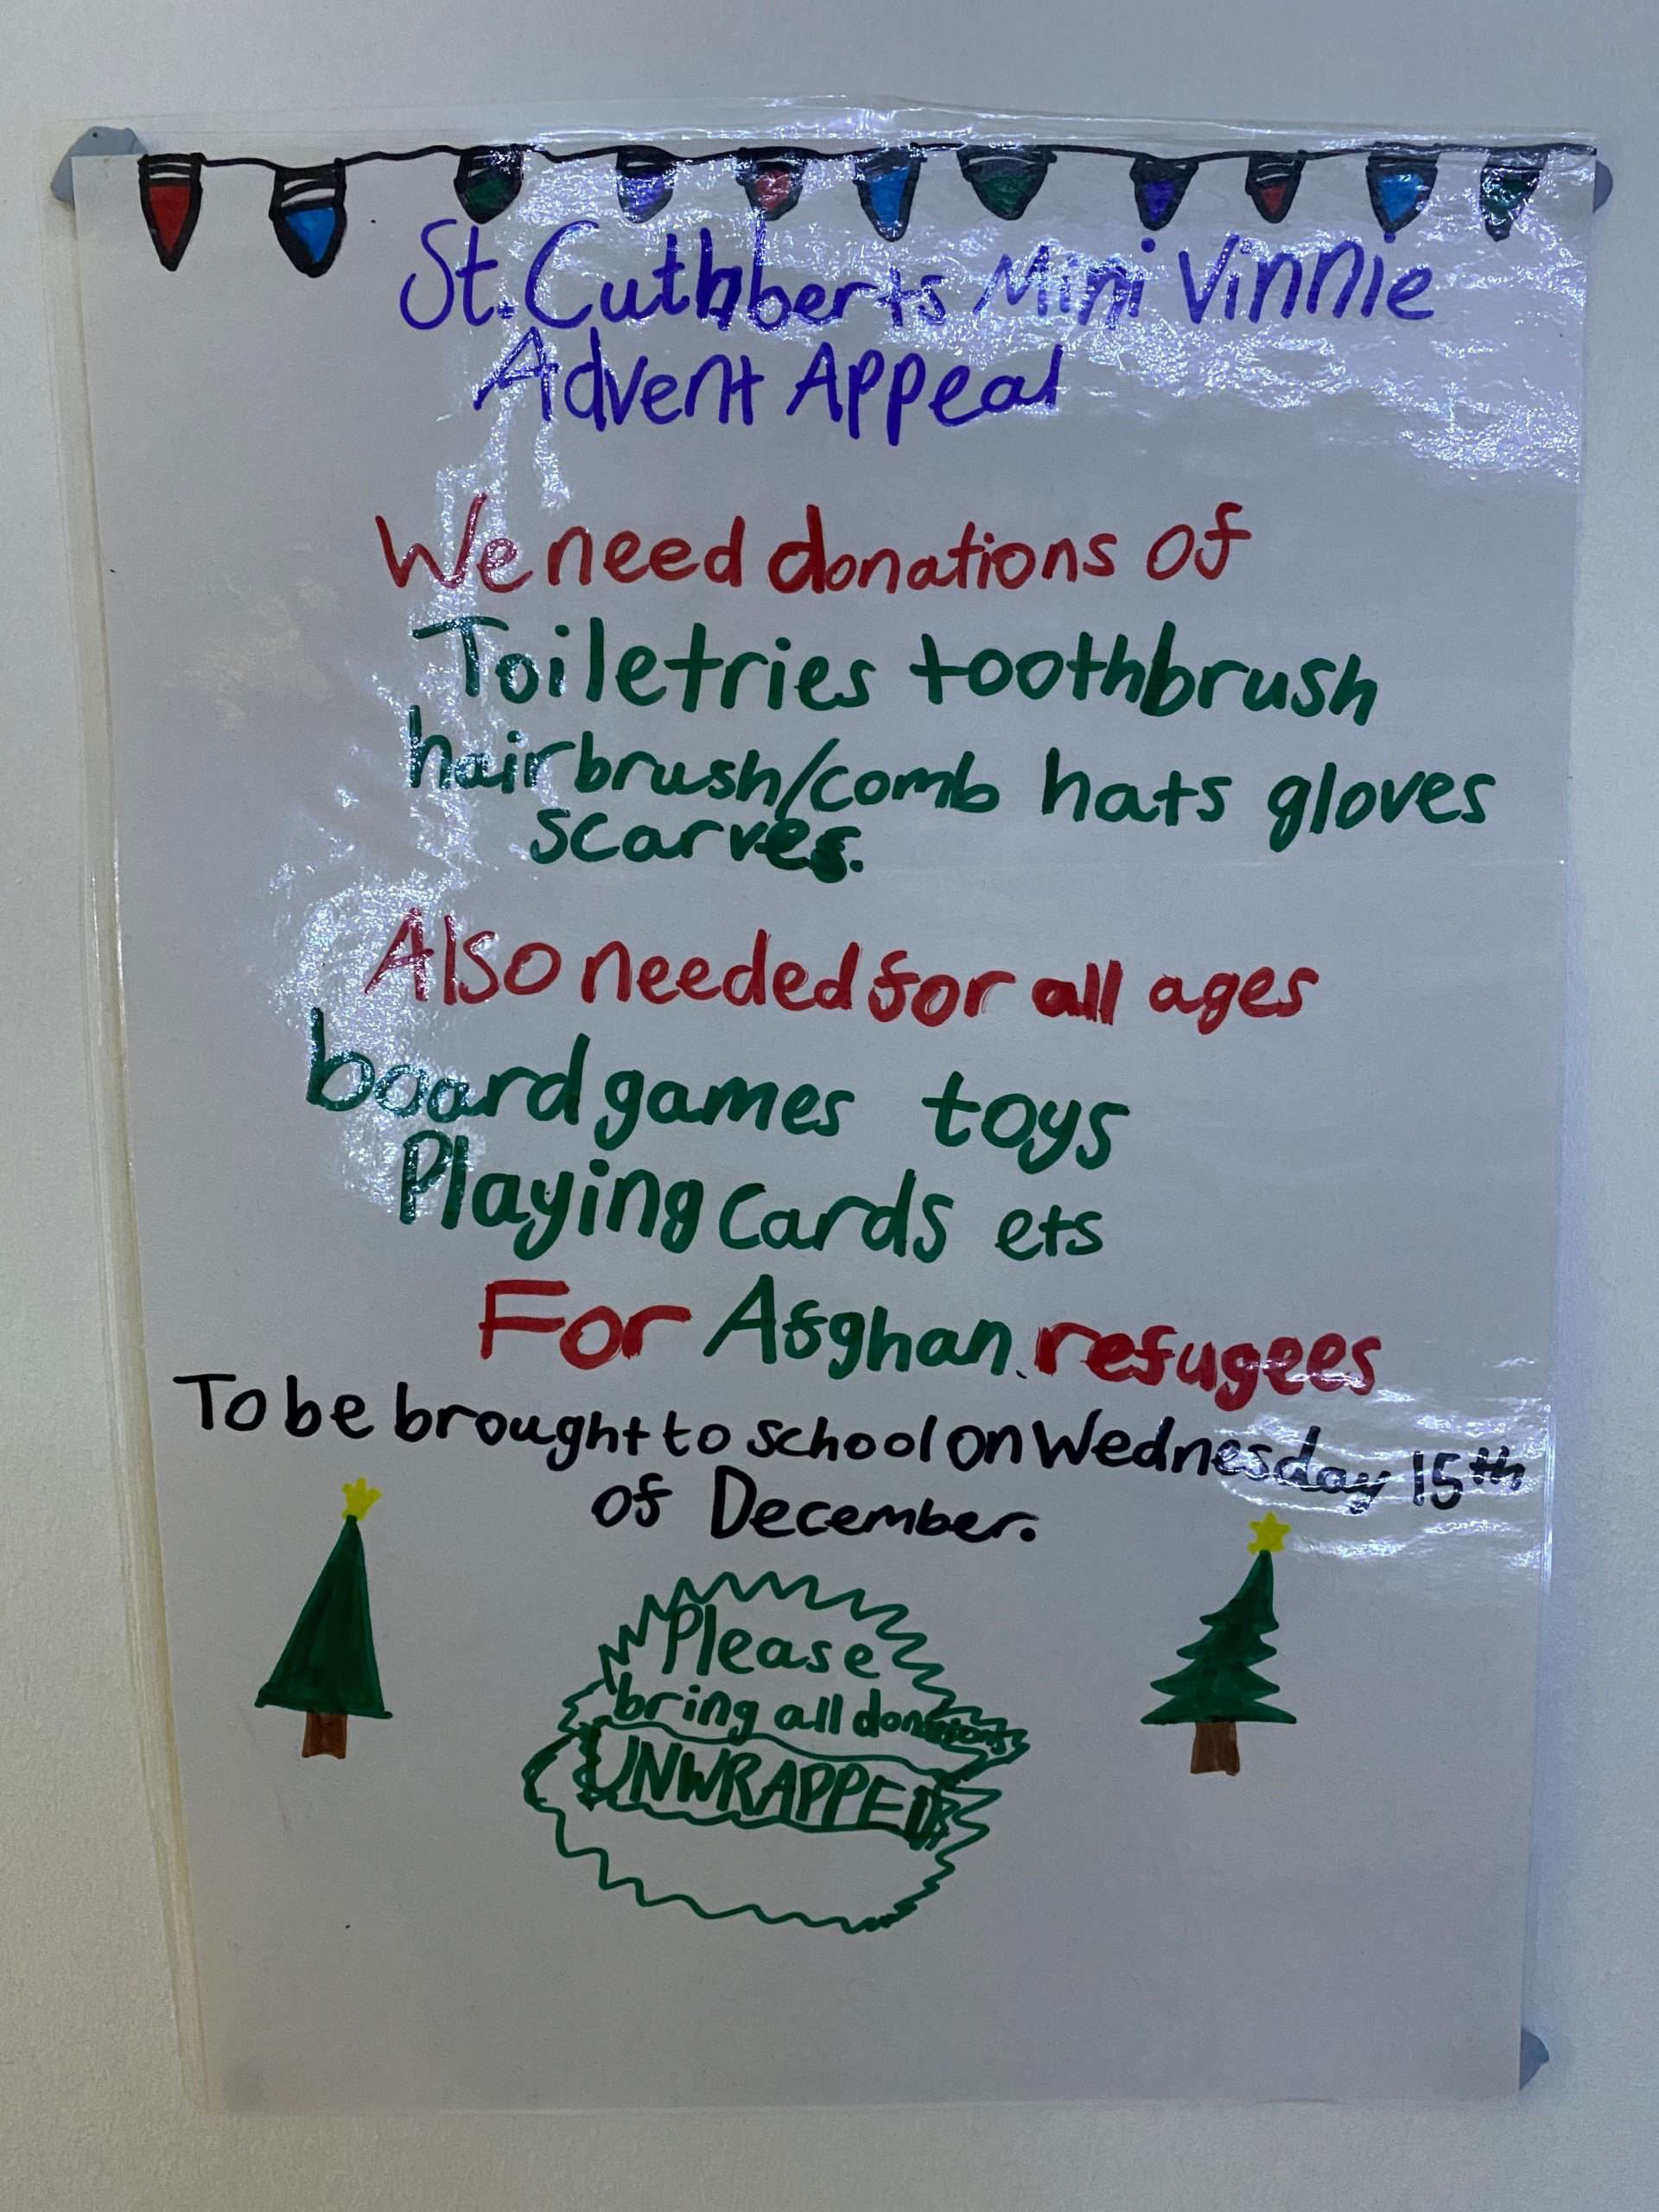 St. Cuthberts Mini Vinnie
Advent Appeal
We need donations of
Toiletries toothbrush
hairbrush/comb hats gloves
scarves.
Also needed for all ages
board games toys
Playing cards ets
For Afghan refugees
To be brought to school on Wednesday 15th
of December.
Please
bring all donations
UNWRAPPED